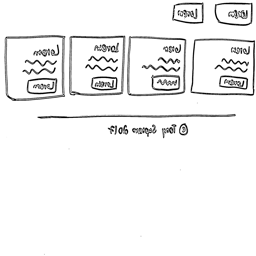 Lorem Lorem
Lorem Lorem Lorem Lorem
Lorem Lorem Lorem Lorem
© Tony 2017